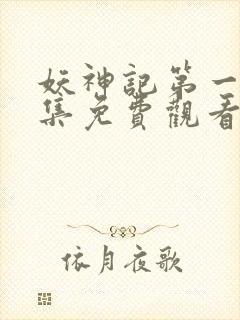 妖神記第一
集免費觀看
依月夜歌